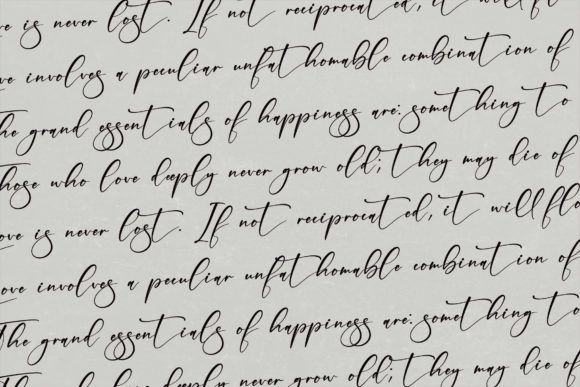 is never lost. If not reciprocated, it will fl
involves a peculiar unfathomable combination of
The grand essentials of happiness are: something to
Those who love deeply never grow old; they may die of
ove is never lost. If not reciprocated, it will flo
ove involves a peculiar unfathomable combination of
The grand essentials of happiness are: something to
who love deeply never grow old; they may die of